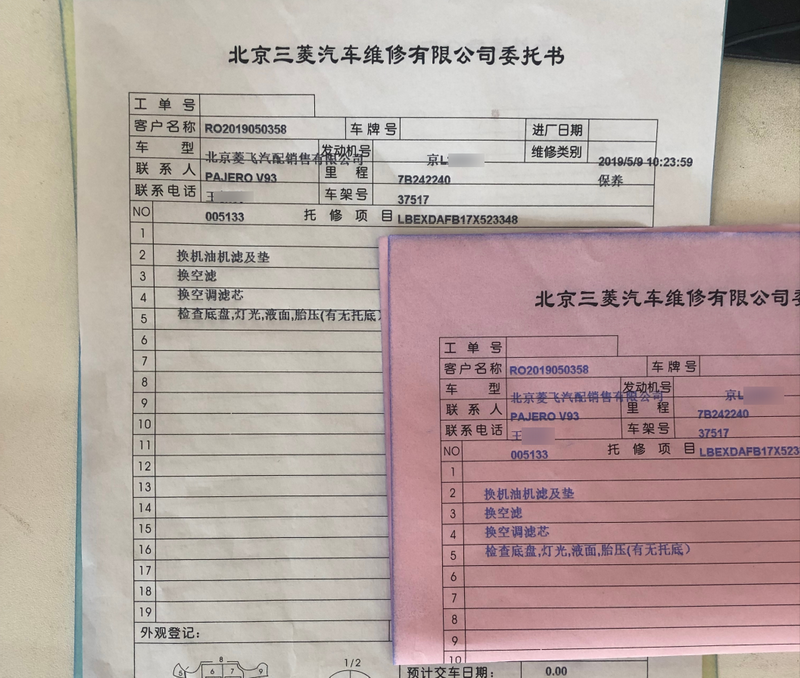 北京三菱汽车维修有限公司委托书
工单号
客户名称 RO2019050358 车牌号 进厂日期
车型 北京菱飞汽配销售有限公司 发动机号 京L 维修类别 2019/5/9 10:23:59
联系人 PAJERO V93 里程 7B242240 保养
联系电话 王 车架号 37517
NO 005133 托修项目 LBEXDAFB17X523348
1
2 换机油机滤及垫
3 换空滤
4 换空调滤芯
5 检查底盘,灯光,液面,胎压(有无托底)
6
7
8
9
10
11
12
13
14
15
16
17
18
19
外观登记:
8
5 6 7 9
1/2
预计交车日期: 0.00
北京三菱汽车维修有限公司
工单号
客户名称 RO2019050358 车牌号
车型 北京菱飞汽配销售有限公司 发动机号 京L
联系人 PAJERO V93 里程 7B242240
联系电话 王 车架号 37517
NO 005133 托修项目 LBEXDAFB17X523
1
2 换机油机滤及垫
3 换空滤
4 换空调滤芯
5 检查底盘,灯光,液面,胎压(有无托底)
6
7
8
9
10